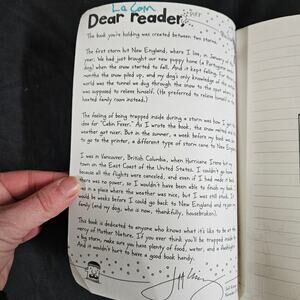 La Com
Dear reader,
The book you're holding was created between two storms.
The first storm hit New England, where I live, in January of
year. We had just brought our new puppy home (a Portu
dog) when the snow started to fall. And it kept falling. For
months the snow piled up, and my dog's only knowledge of the
world was the tunnel we dug through the snow to the spot wh
was supposed to relieve himself. (He preferred to relieve himself in the
heated family room instead.)
The feeling of being trapped inside during a storm was how I got
idea for "Cabin Fever." As I wrote the book, the snow melted and
weather got nicer. But in the summer, a week before my book was
to go to the printer, a different type of storm came to New Eng
I was in Vancouver, British Columbia, when Hurricane Irene hit my
town on the East Coast of the United States. I couldn't go home
because all the flights were canceled, and even if I had made it ba
there was no power, so I wouldn't have been able to finish my book. I
was in a place where the weather was nice, but I was still stuck. It
would be weeks before I could go back to New England and rejoin
family (and my dog, who is now, thankfully, housebroken).
This book is dedicated to anyone who knows what it's like to be at the
mercy of Mother Nature. If you ever think you'll be trapped inside
a big storm, make sure you have plenty of food, water, and a flashlight.
And it wouldn't hurt to have a good book handy.